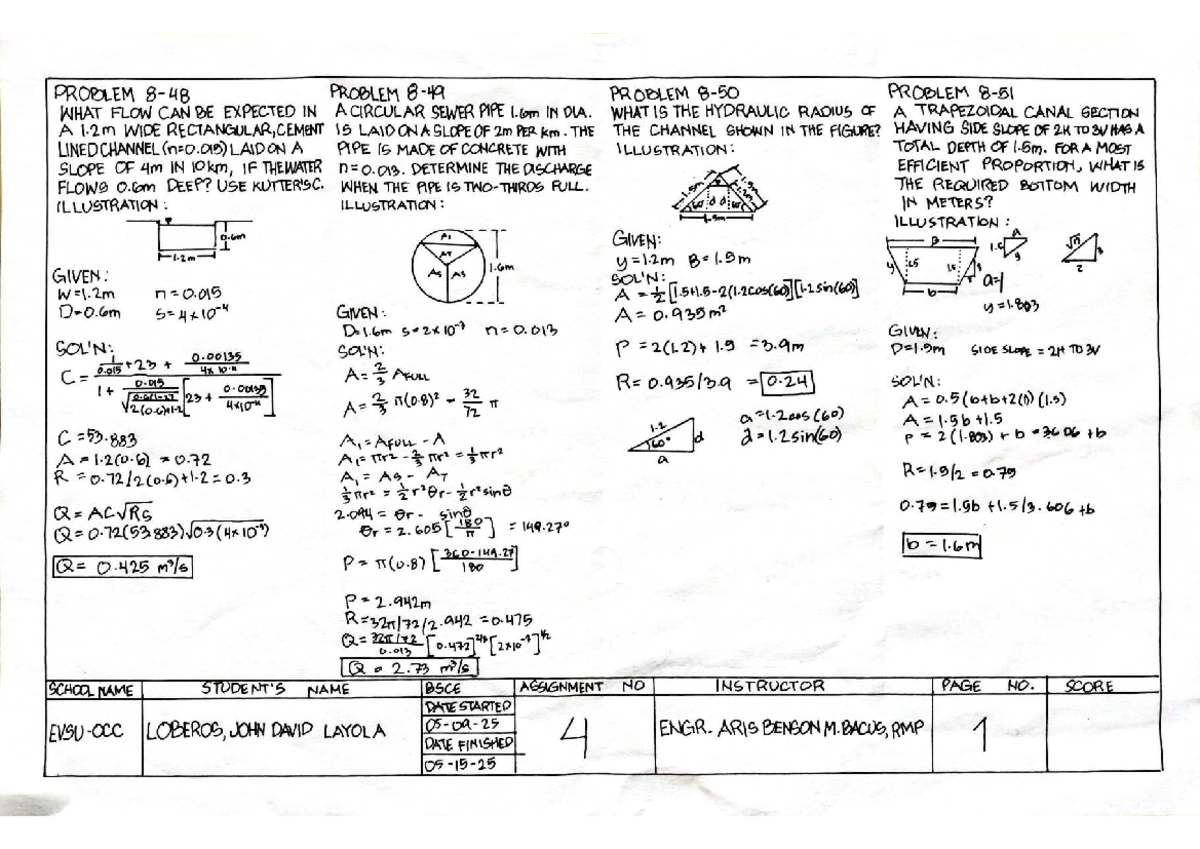 PROBLEM 8-48
WHAT FLOW CAN BE EXPECTED IN
A 1.2m WIDE RECTANGULAR, CEMENT
LINED CHANNEL (n=0.015) LAID ON A
SLOPE OF 4m IN 10km, IF THE WATER
FLOWS 0.6m DEEP? USE KUTTER'S C.
ILLUSTRATION:
0.6m
1.2m
GIVEN:
W=1.2m n=0.015
D=0.6m S=4x10⁻⁴
SOL'N:
C=53.883
A=1.2(0.6) = 0.72
R = 0.72/2(0.6)+1.2 = 0.3
Q = AC√RS
Q= 0.425 m³/s
PROBLEM 8-49
A CIRCULAR SEWER PIPE 1.6m IN DIA.
IS LAID ON A SLOPE OF 2m PER km. THE
PIPE IS MADE OF CONCRETE WITH
n=0.013. DETERMINE THE DISCHARGE
WHEN THE PIPE IS TWO-THIRDS FULL.
ILLUSTRATION:
A₁
AT
AS AS
1.6m
GIVEN:
D=1.6m S=2x10⁻³ n=0.013
SOL'N:
A= 2/3 AFULL
A₁=AFULL-A
A₁=πr²-2/3πr²=1/3πr²
A₁ = AS - AT
1/3πr² = 1/2r²θr-1/2r²sinθ
2.094 = θr - sinθ
θr = 2.605[180/π] = 149.27°
P = π(0.8)[360-149.27/180]
P = 2.942m
R=32π/72/2.942 = 0.475
Q = 2.73 m³/s
PROBLEM 8-50
WHAT IS THE HYDRAULIC RADIUS OF
THE CHANNEL SHOWN IN THE FIGURE?
ILLUSTRATION:
60° d d 60°
1.5m
GIVEN:
y=1.2m B=1.5m
SOL'N:
A = 1/2[1.5+1.5-2(1.2cos(60)][1.2sin(60)]
A= 0.935m²
P = 2(1.2)+ 1.5 = 3.9m
R= 0.935/3.9 = 0.24
a=1.2cos(60)
d=1.2sin(60)
1.2
60°
d
a
PROBLEM 8-51
A TRAPEZOIDAL CANAL SECTION
HAVING SIDE SLOPE OF 2H TO 3V HAS A
TOTAL DEPTH OF 1.5m. FOR A MOST
EFFICIENT PROPORTION, WHAT IS
THE REQUIRED BOTTOM WIDTH
IN METERS?
ILLUSTRATION:
B
y
1.5
b
a=1
y=1.803
GIVEN:
D=1.5m SIDE SLOPE = 2H TO 3V
SOL'N:
A= 0.5(b+b+2(1))(1.5)
A= 1.5b+1.5
P = 2(1.803) + b = 3.606 +b
R=1.5/2 =0.75
0.75=1.5b +1.5/3.606+b
b=1.6m
SCHOOL NAME STUDENT'S NAME BSCE ASSIGNMENT NO INSTRUCTOR PAGE NO. SCORE
EVSU-OCC LOBEROS, JOHN DAVID LAYOLA 4 ENGR. ARIS BENSON M. BACUS, RMP 1
DATE STARTED
05-09-25
DATE FINISHED
05-15-25